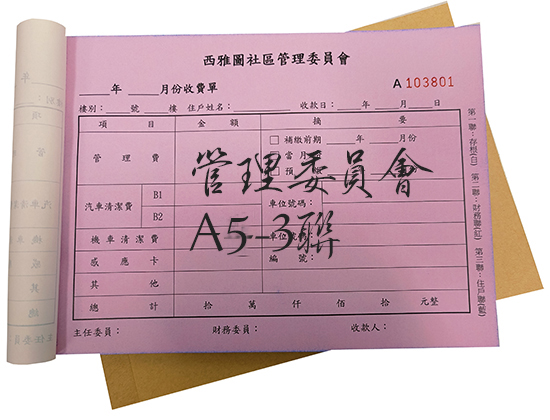 西雅圖社區管理委員會
A 103801
____年 ____月份收費單
樓別：____號____樓 住戶姓名：________ 收款日：____年____月____日
項 目 金 額 摘 要
管 理 費 □ 補繳前期____年____月份
□ 當月
□ 預
汽車清潔費 B1 車位號碼：
B2
機車清潔費 車位號碼：
感 應 卡 編 號：
其 他
總 計 拾 萬 仟 佰 拾 元整
主任委員： 財務委員： 收款人：
第一聯：存根(白) 第二聯：財務聯(紅) 第三聯：住戶聯(藍)
管理委員會
A5-3聯